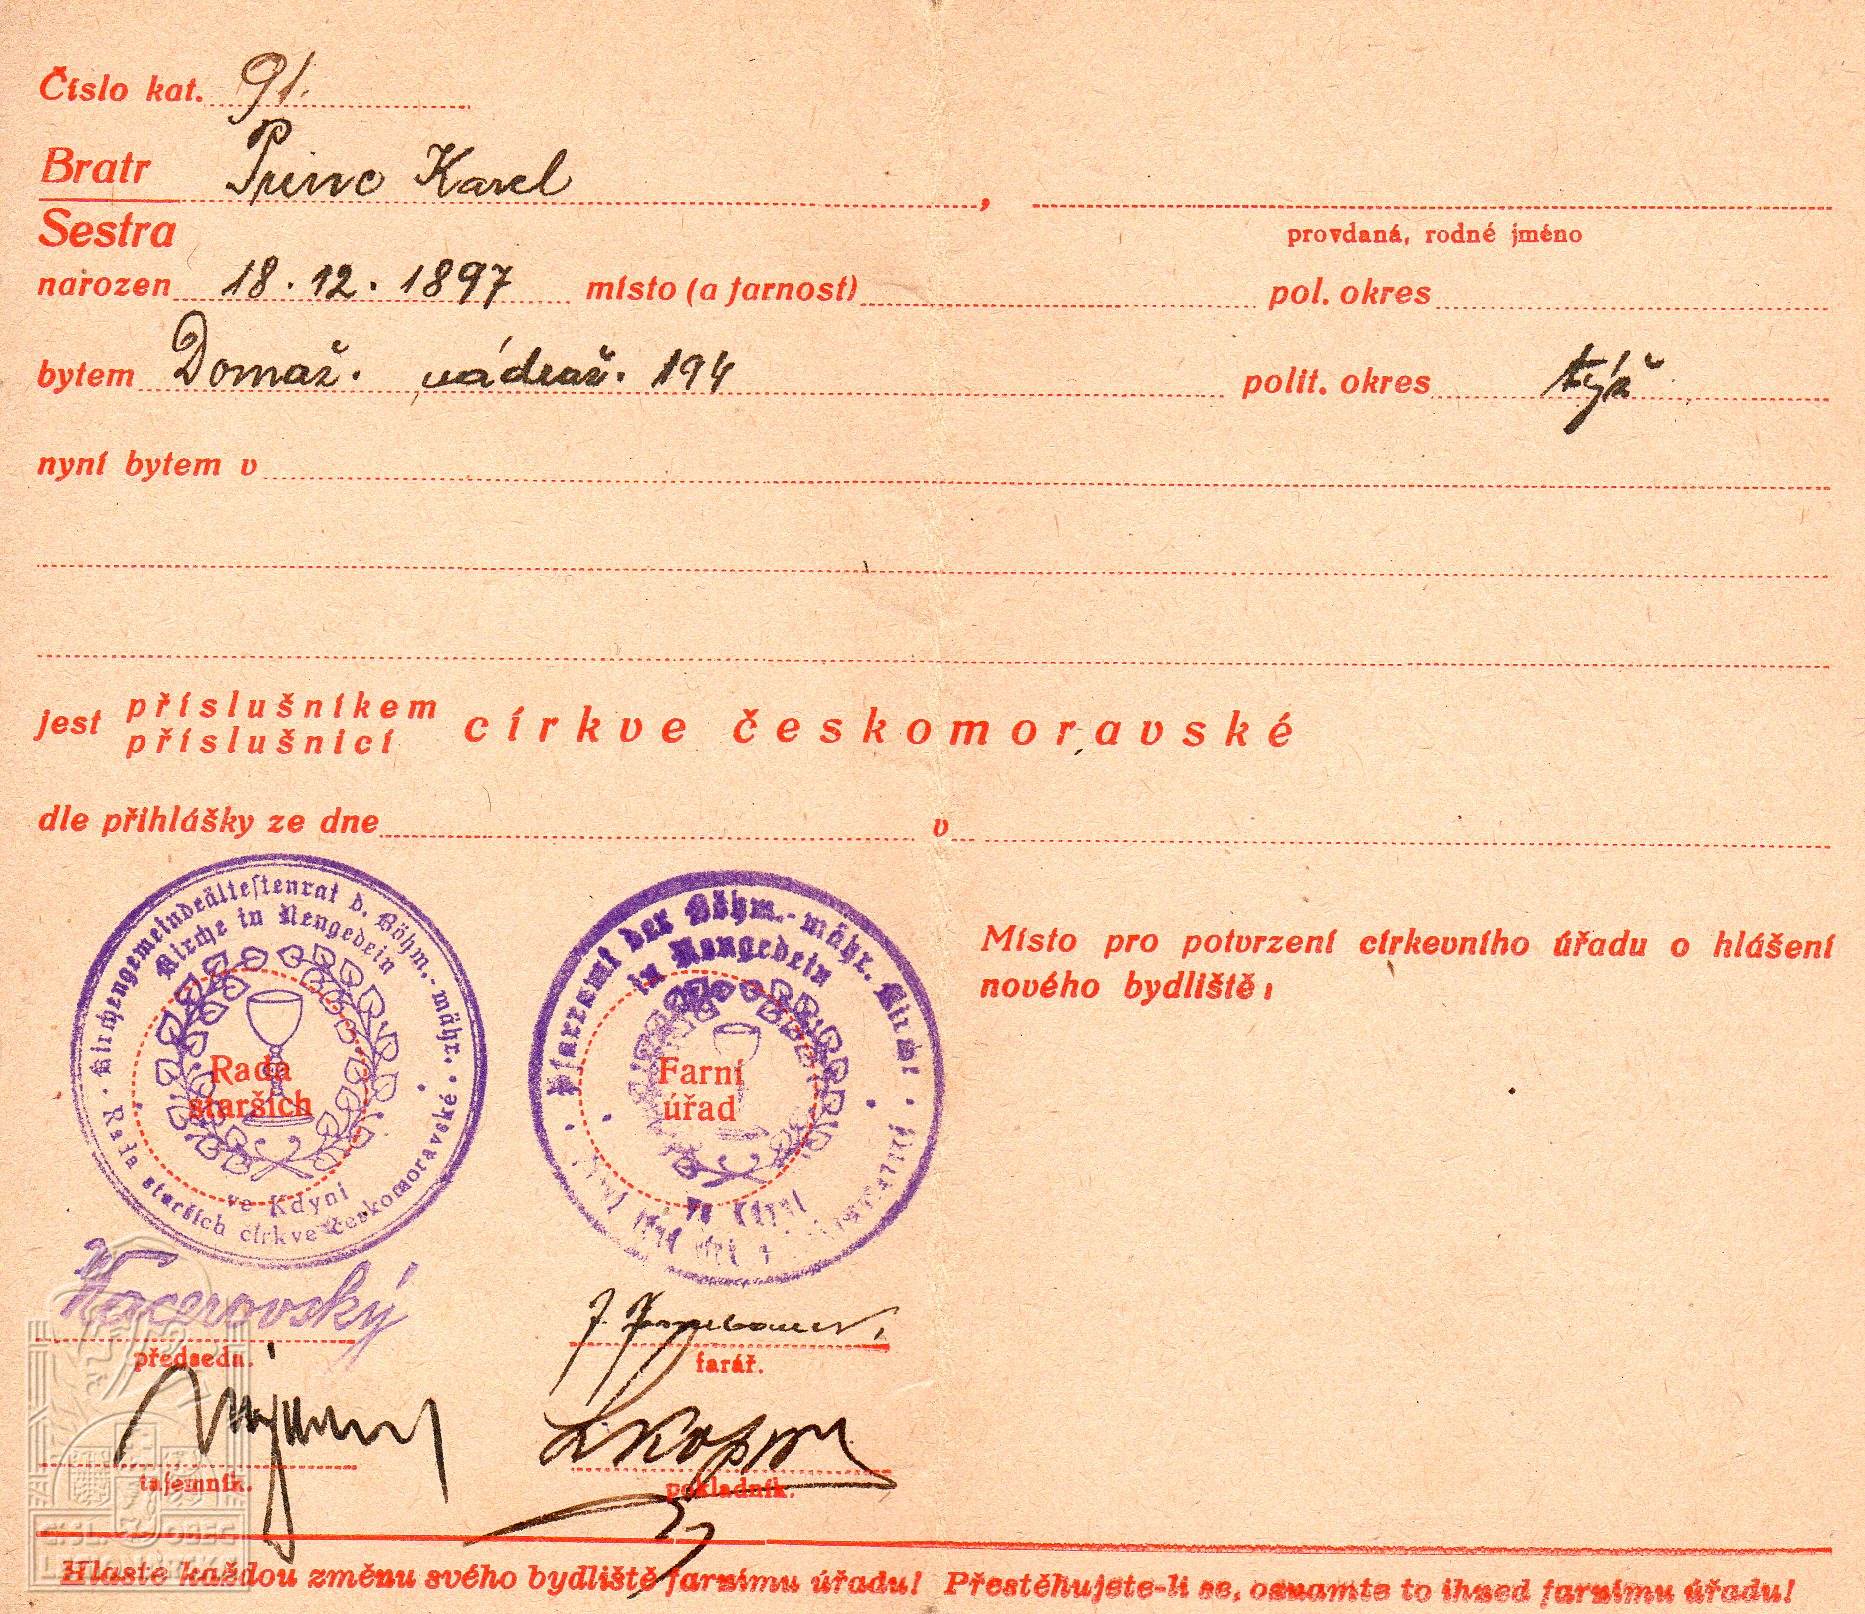 Číslo kat. 91.
Bratr Princ Karel ,
Sestra
provdaná, rodné jméno
narozen 18. 12. 1897 místo (a farnost) pol. okres
bytem Domaž. nádraž. 194 polit. okres týž
nyní bytem v
jest příslušníkem
příslušnicí
církve českomoravské
dle přihlášky ze dne v
Kirchengemeindeältestenrat d. Böhm.-mähr. Kirche in Neugedein
Rada starších církve českomoravské
ve Kdyni
Rada
starších
Pfarramt der Böhm.-mähr. Kirche
in Neugedein
ve Kdyni
Farní
úřad
Místo pro potvrzení církevního úřadu o hlášení
nového bydliště:
Kacerovský
předseda.
farář.
tajemník.
pokladník.
Hlaste každou změnu svého bydliště farnímu úřadu! Přestěhujete-li se, oznamte to ihned farnímu úřadu!